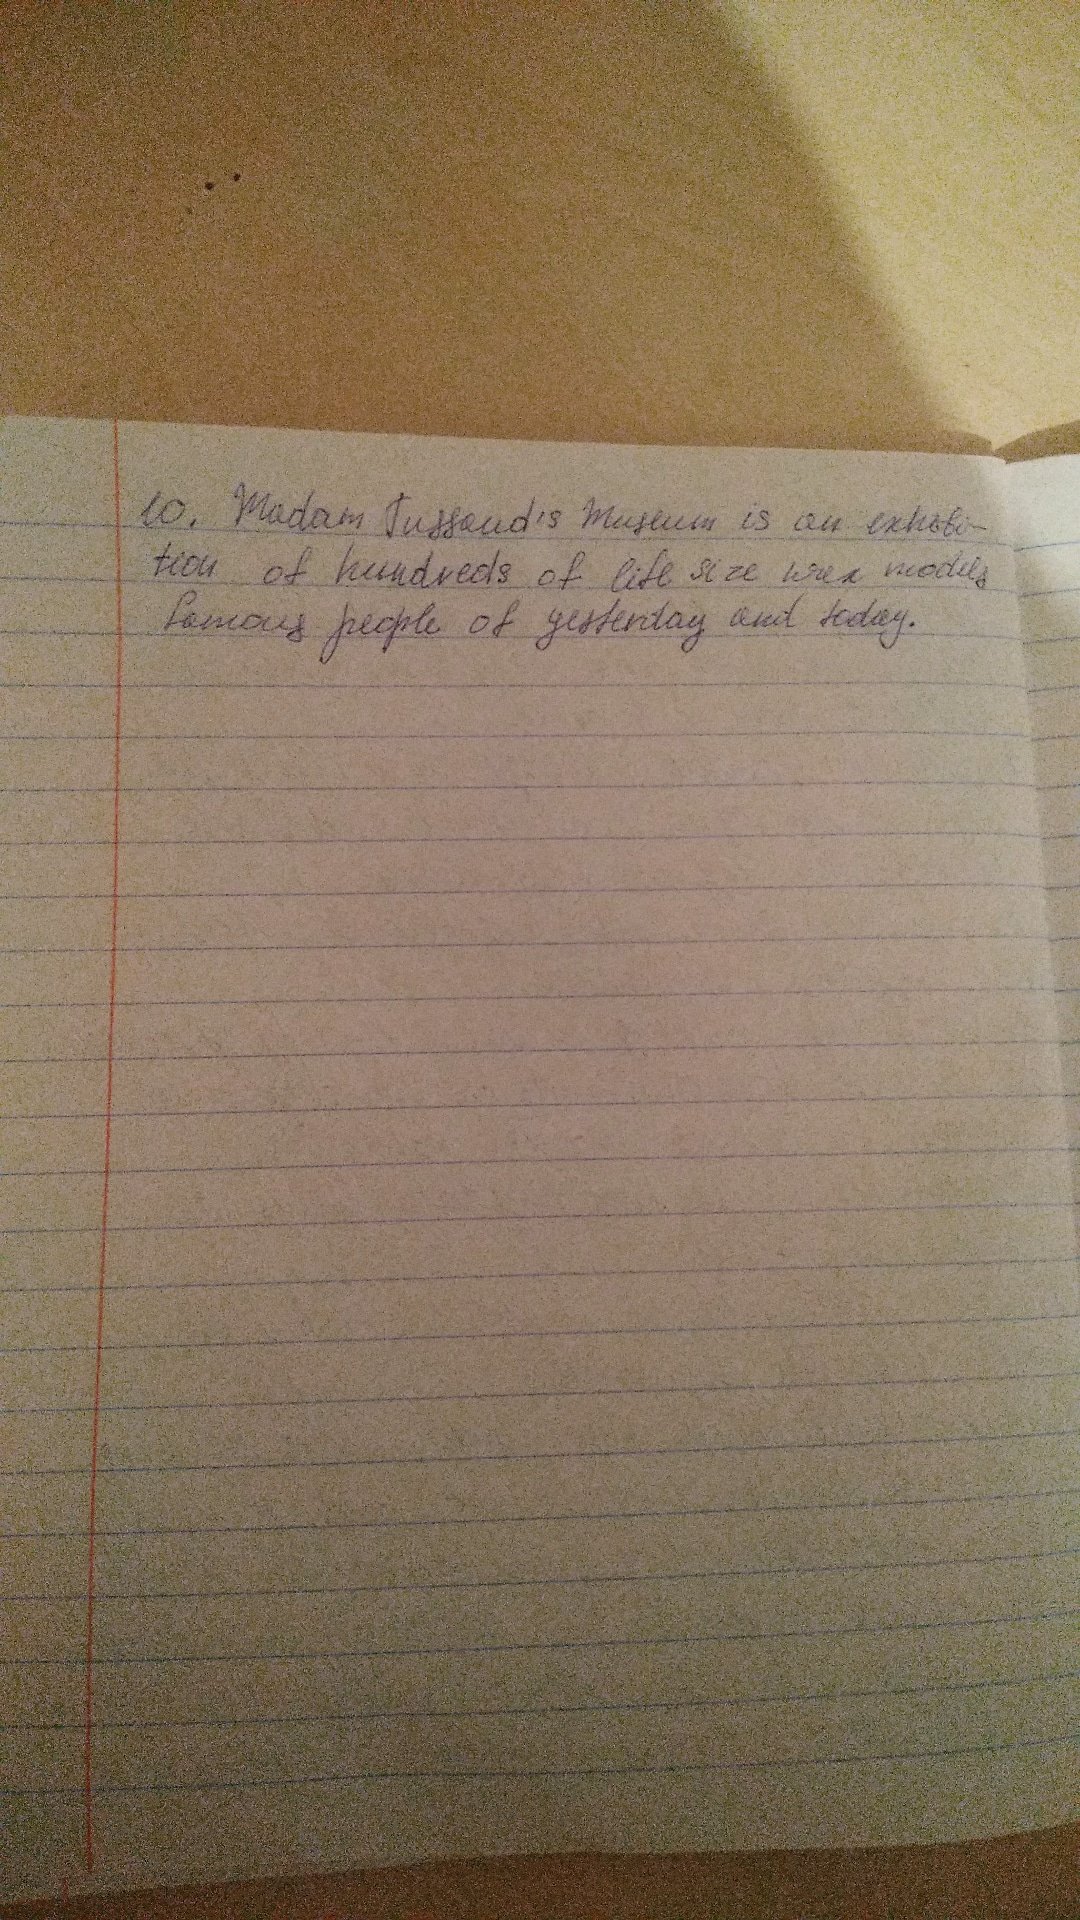 10. Madam Tussaud's Museum is an exhibi-
tion of hundreds of life size wax models
famous people of yesterday and today.